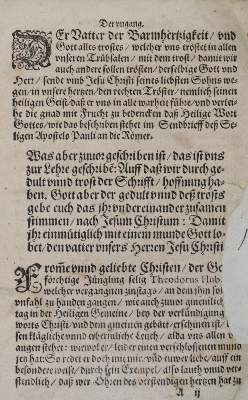 Der eingang.
DEr Vatter der Barmhertzigkeit / vnd
Gott alles trostes / welcher vns tröstet in allen
vnseren Trübsalen / mit dem trost / damit wir
auch andere sollen trösten / derselbige Gott vnd
Herr / sende vmb Jesu Christi seines liebsten Sohns we-
gen / in vnsere hertzen / den rechten Tröster / nemlich seinen
heiligen Geist / daß er vns in alle warheit führe / vnd verlei-
he die gnad mit Frucht zu bedencken daß Heilige Wort
Gottes / wie das beschriben stehet im Sendbrieff deß Se-
ligen Apostels Pauli an die Römer.
Was aber zuuor geschriben ist / das ist vns
zur Lehre geschribẽ: Auff daß wir durch ge-
dult vnnd trost der Schrifft / hoffnung ha-
ben. Gott aber der gedult vnnd deß trosts
gebe euch das ihr vndereinander zusamen
stimmen / nach Jesum Christum: Damit
ihr einmütiglich mit einem munde Gott lo-
bet / den vatter vnsers Herren Jesu Christi
FRomme vnnd geliebte Christen / der Go
förchtige Jüngling selig Theodorus Hub.
welcher vergangen
zu handen gangen / wie auch zuuor
tag in der Heiligen Gemeine / bey der verkündigung
worts Christi / vnnd dem gmeinen gebätt / erschinen ist /
sen klägliche vnnd erbermliche Leich / alda vns allen v
augen stehet: wiewol er / leider einen verschlossenen mund
jez hat: So redet er doch mit mir vnd euwer liebe / auff ein
besondere weise / durch sein Exempel / also lauth vnnd ver-
stendlich / daß wer Ohren des verstendigen hertzen hat zu
A ij